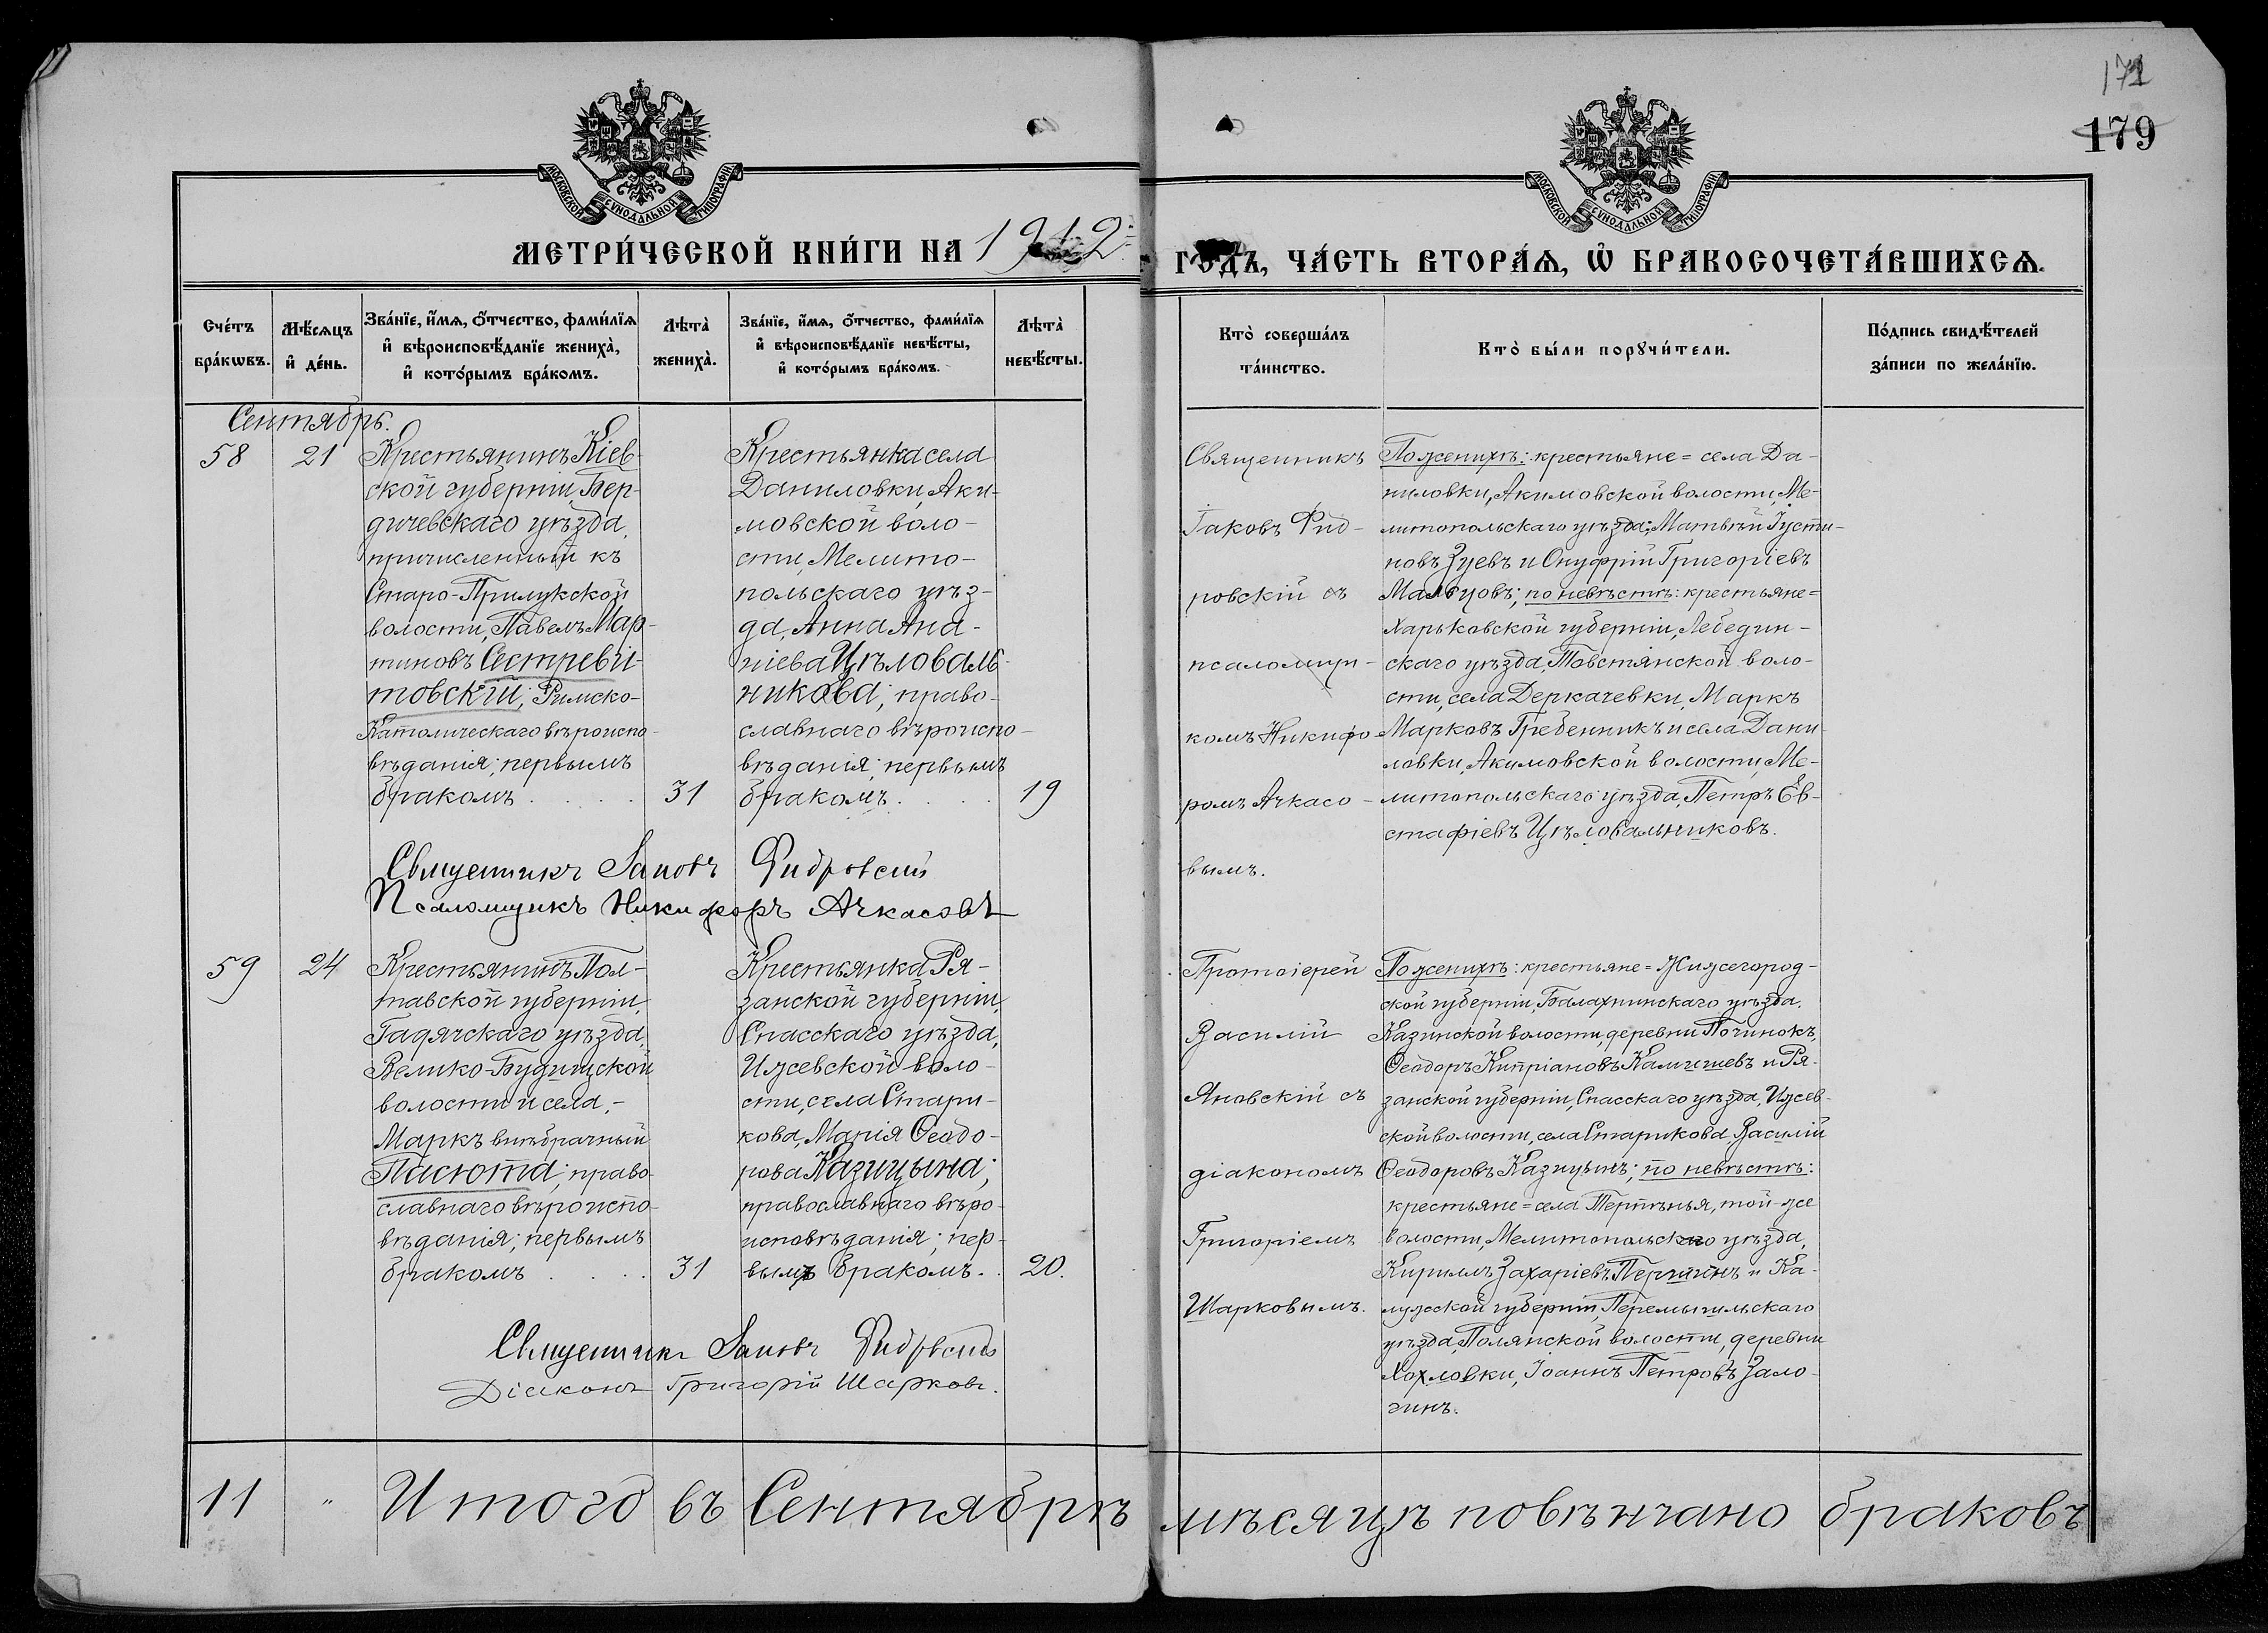 171
179
МОСКОВСКОЙ СУНОДАЛЬНОЙ ТИПОГРАФІИ
МОСКОВСКОЙ СУНОДАЛЬНОЙ ТИПОГРАФІИ
МЕТРИ́ЧЕСКОЙ КНИ́ГИ НА 1912
ГОДЪ, ЧА́СТЬ ВТОРА́Ѧ, Ѡ҆ БРАКОСОЧЕТА́ВШИХСѦ.
Сче́тъ бра́кѡвъ.
Мѣ́сѧцъ и҆ де́нь.
Зва́нїе, и҆́мѧ, ѻ҆́тчество, фами́лїѧ
и҆ вѣроисповѣ́данїе жениха̀,
и҆ кото́рымъ бра́комъ.
Лѣта̀ жениха̀.
Зва́нїе, и҆́мѧ, ѻ҆́тчество, фами́лїѧ
и҆ вѣроисповѣ́данїе невѣ́сты,
и҆ кото́рымъ бра́комъ.
Лѣта̀ невѣ́сты.
Кто̀ соверша́лъ та́инство.
Кто̀ бы́ли порꙋчи́тели.
По́дпись свидѣ́телей
за́писи по жела́нїю.
Сентябрь.
58
21
Крестьянинъ Кіев-
ской губерніи, Бер-
дичевскаго уѣзда,
причисленный къ
Старо-Прилукской
волости, Павелъ Мар-
тиновъ Сестреви-
товскій; Римско-
Католическаго вѣроиспо-
вѣданія; первымъ
бракомъ . . . .
31
Крестьянка села
Даниловки, Аки-
мовской воло-
сти, Мелито-
польскаго уѣз-
да, Анна Ана-
ніева Цѣловаль-
никова; право-
славнаго вѣроиспо-
вѣданія; первымъ
бракомъ. . . .
19
Священникъ
Іаковъ Фид-
ровскій съ
псаломщи-
комъ Никифо-
ромъ Ачкасо-
вымъ.
По женихѣ: крестьяне= села Да-
ниловки, Акимовской волости, Ме-
литопольскаго уѣзда: Матвѣй Іусти-
новъ Зуевъ и Онуфрій Григоріевъ
Мальцовъ; по невѣстѣ: крестьяне=
Харьковской губерніи, Лебедин-
скаго уѣзда, Товстянской воло-
сти, села Деркачевки, Маркъ
Марковъ Гребенникъ и села Дани-
ловки, Акимовской волости, Ме-
литопольскаго уѣзда, Петръ Ев-
стафіевъ Цѣловальниковъ.
Священникъ Іаковъ Фидровскій
Псаломщикъ Никифоръ Ачкасовъ
59
24
Крестьянинъ Пол-
тавской губерніи,
Гадячскаго уѣзда,
Велико-Будищской
волости и села,-
Маркъ внѣбрачный
Пасюта; право-
славнаго вѣроиспо-
вѣданія; первымъ
бракомъ . . . .
31
Крестьянка Ря-
занской губерніи,
Спасскаго уѣзда,
Ижевской воло-
сти, села Стари-
кова, Марія Ѳеодо-
рова Казицына;
православнаго вѣро-
исповѣданія; пер-
вымъ бракомъ. .
20.
Протоіерей
Василій
Яновскій съ
діакономъ
Григоріемъ
Шарковымъ.
По женихѣ: крестьяне= Нижегород-
ской губерніи, Балахнинскаго уѣзда,
Казинской волости, деревни Починокъ,
Ѳеодоръ Кипріановъ Камишевъ и Ря-
занской губерніи, Спасскаго уѣзда, Ижев-
ской волости, села Старикова Василій
Ѳеодоровъ Казицынъ; по невѣстѣ:
крестьяне= села Терпѣнья, той-же
волости, Мелитопольскаго уѣзда,
Кириллъ Захаріевъ и Ка-
лужской губерніи, Перемышльскаго
уѣзда, Полянской волости, деревни
Хохловки, Іоаннъ Петровъ Зало-
гинъ.
Священникъ Іаковъ Фидровскій
Діаконъ Григорій Шарковъ.
11 " Итого въ Сентябрѣ мѣсяцѣ повѣнчано браковъ